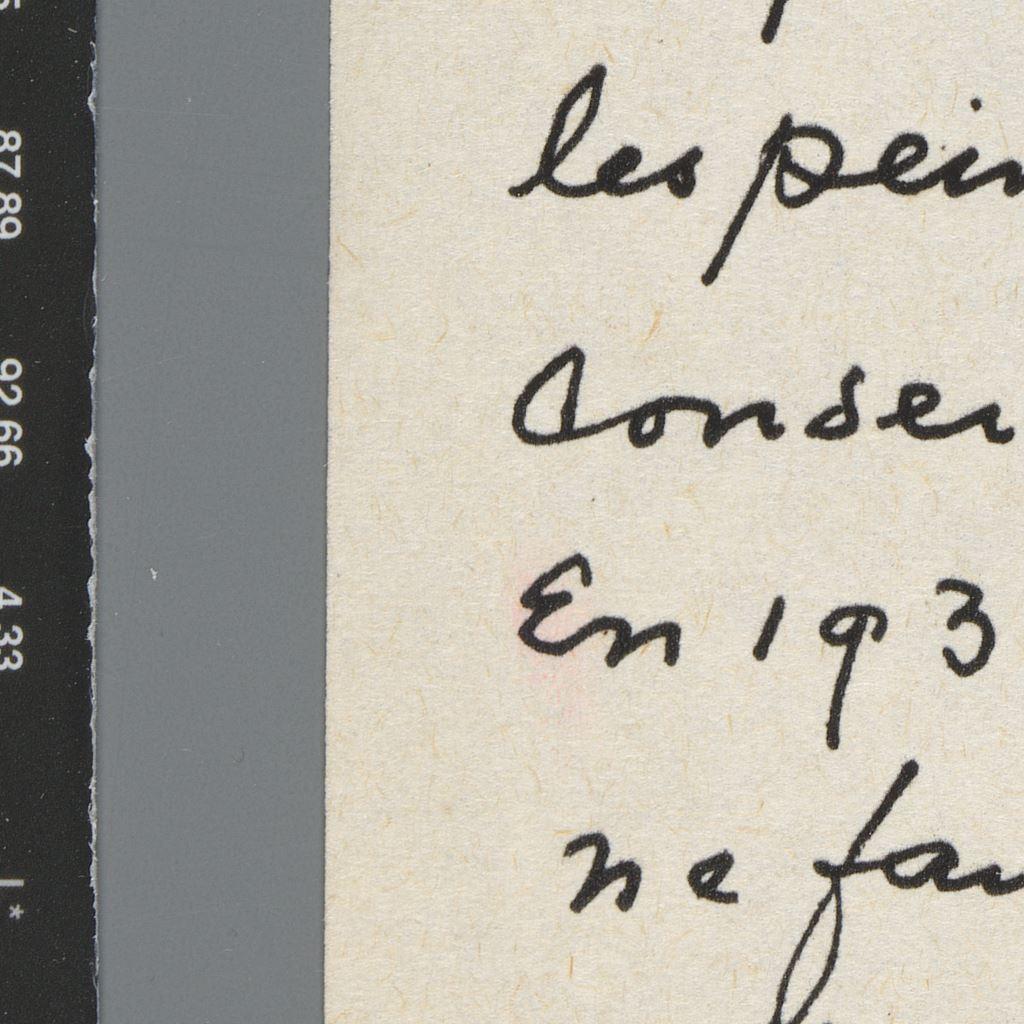 les pein
Conser
En 193
ne fau
87.89
92.66
4.33
L*